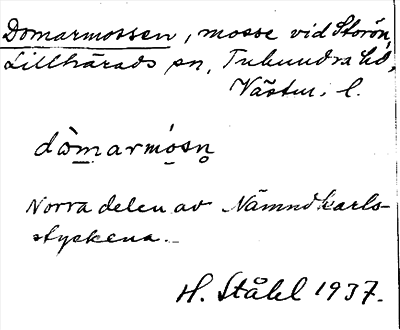 Domarmossen, mosse vid Storön,
Lillhärads sn, Tuhundra hd,
Västm. l.
dòmarmósn̥
Norra delen av Nämndkarls-
styckena.
H. Ståhl 1937.